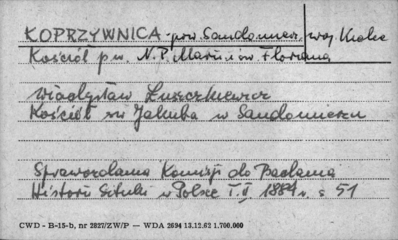 KOPRZYWNICA pow Sandomierz, woj Kielce
Kościół p.w. N.P. Marii i św Floriana
Władysław Łuszczkiewicz
Kościół św Jakuba w Sandomierzu
Sprawozdania Komisji do Badania
Historii Sztuki w Polsce T. II 1884 r. s 51
CWD - B-15-b, nr 2827/ZW/P — WDA 2694 13.12.62 1.700.000